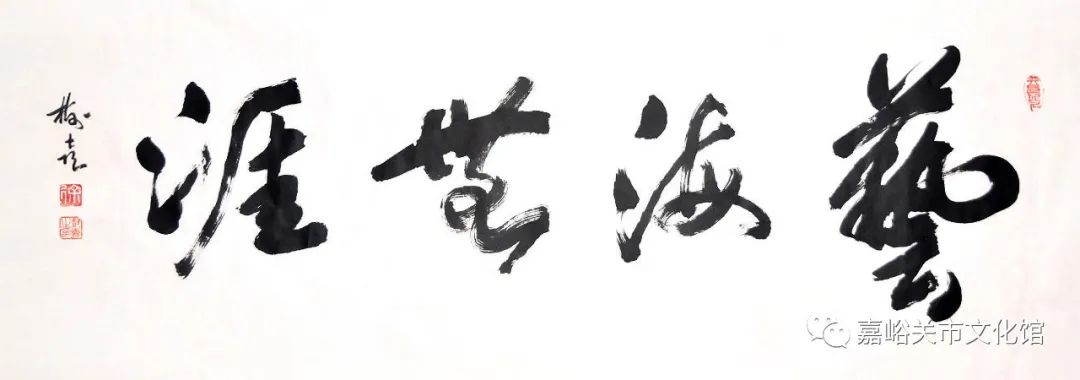 藝海無涯
嘉峪关市文化馆